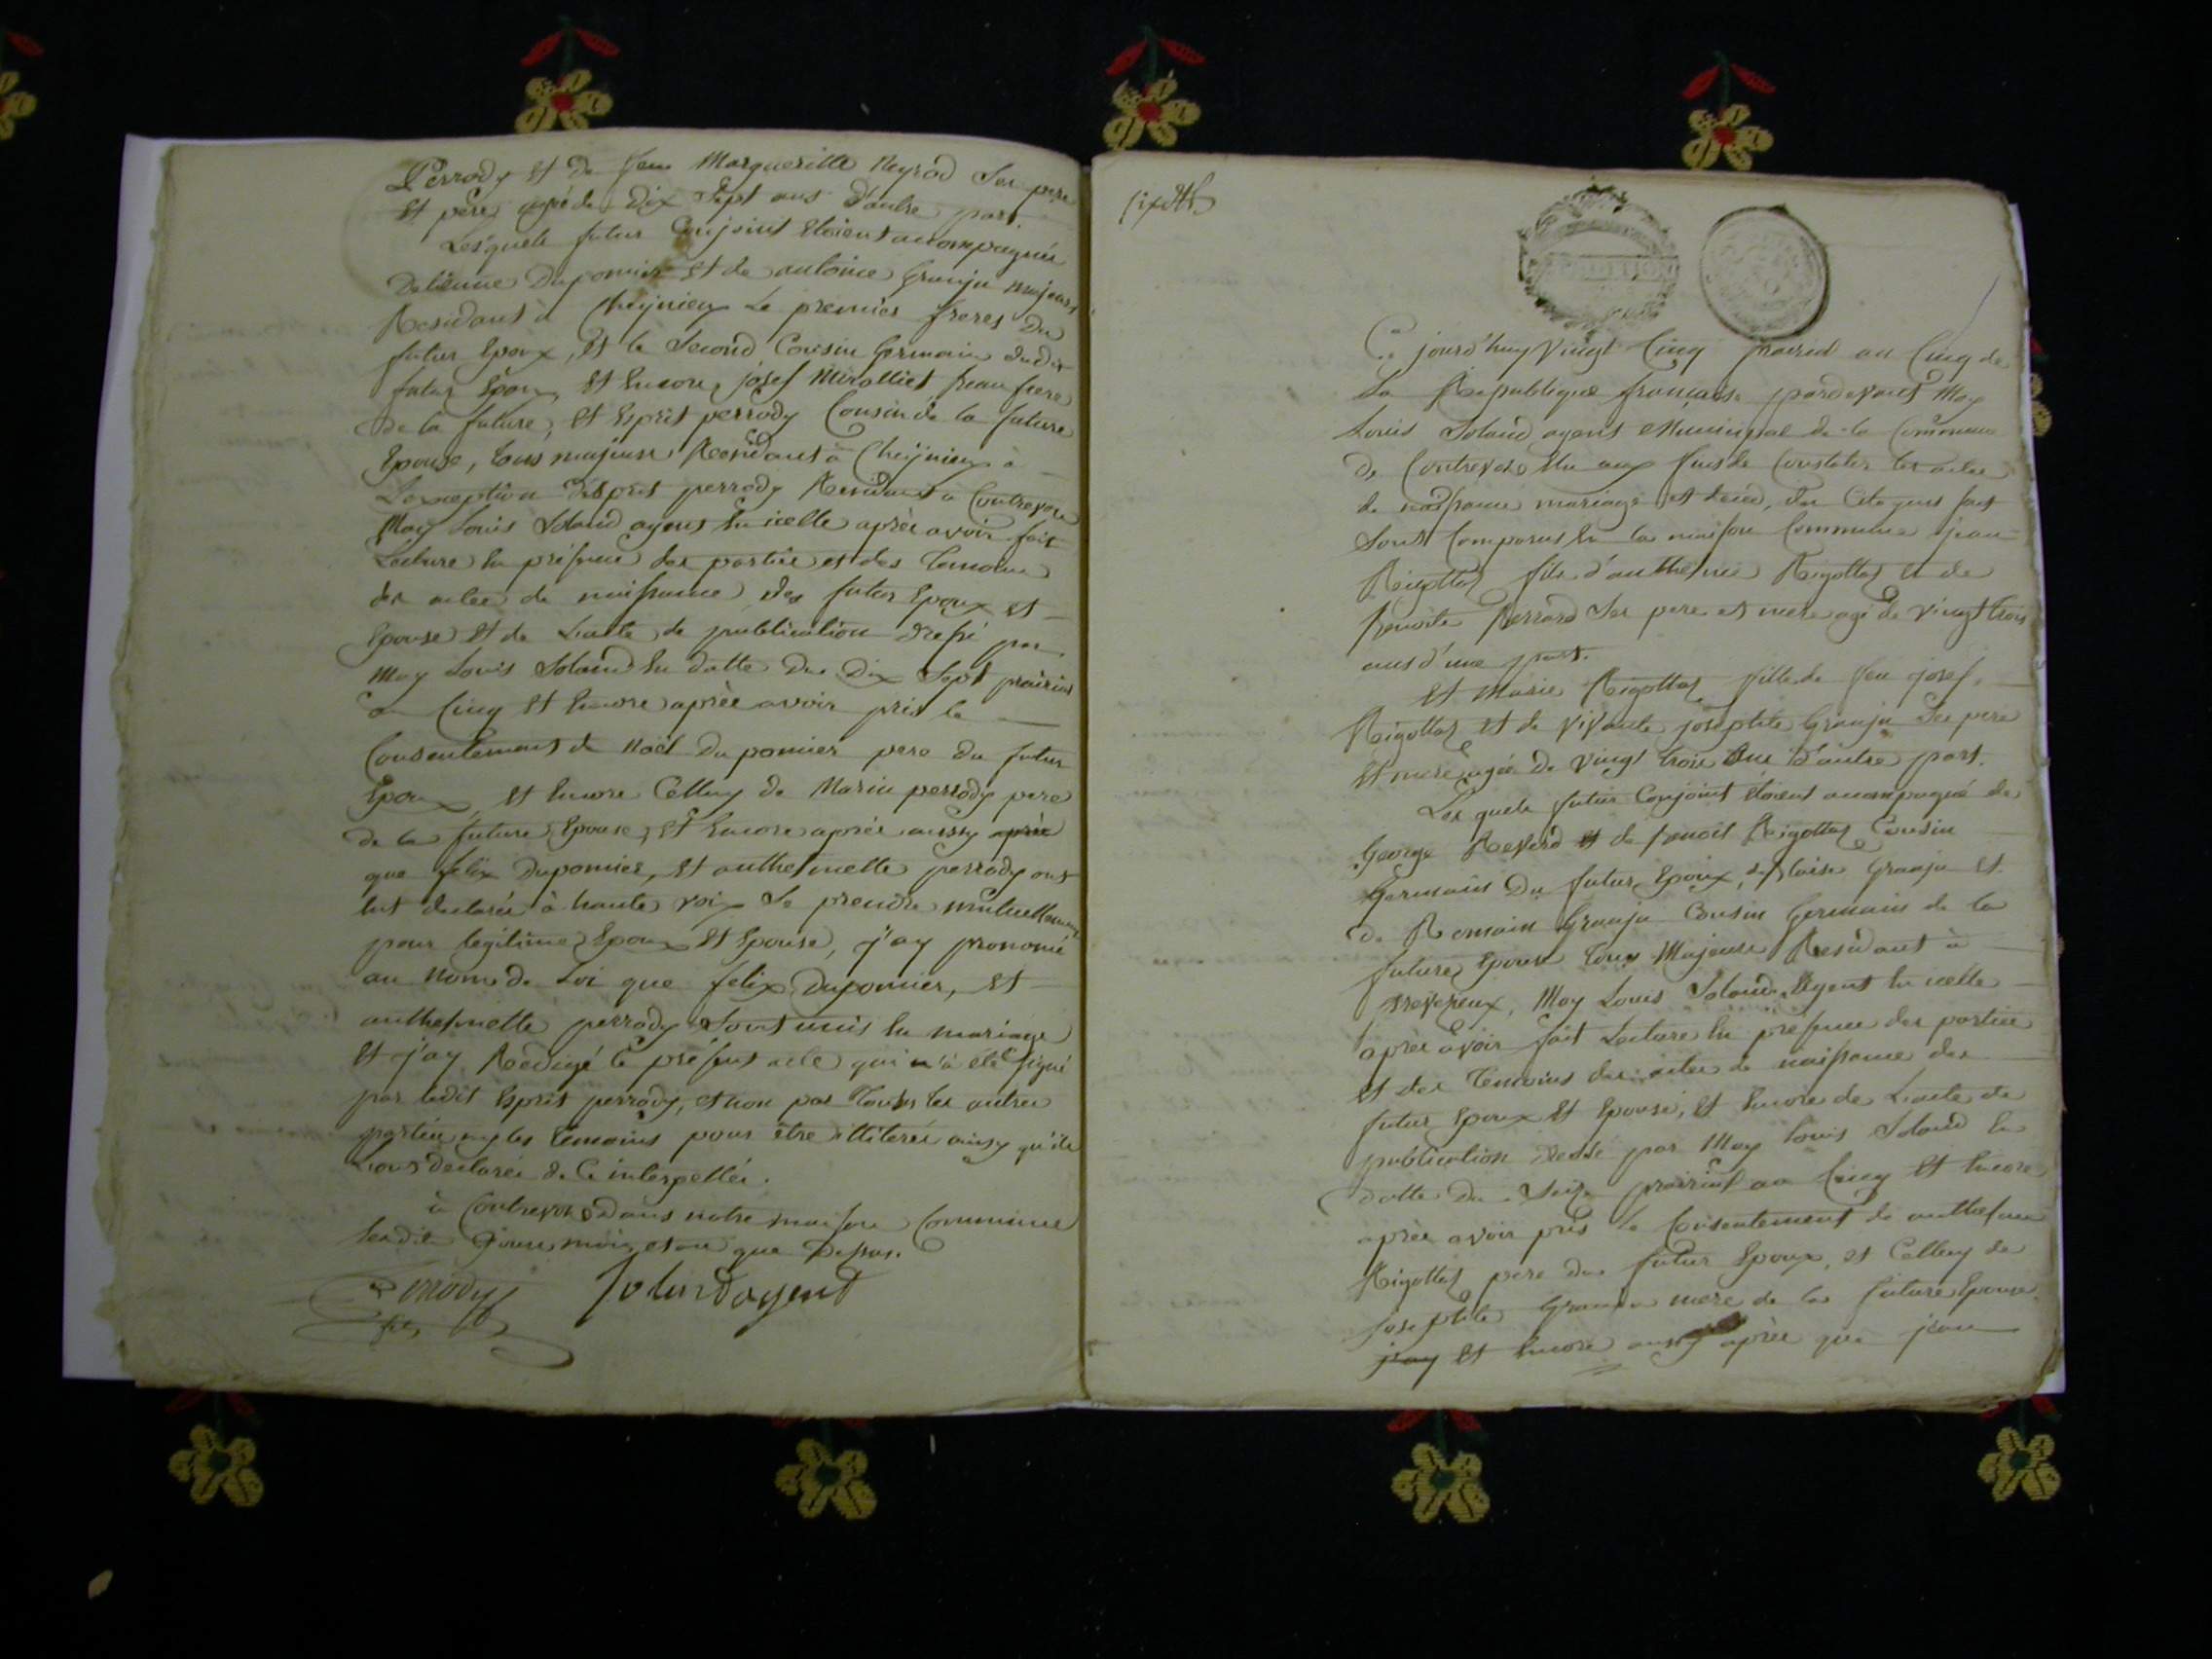 Perrody et de feue Margueritte Neyrod Ses pere
et pere agée de Dix Sept ans d'autre part
Les quels futur Conjoint étoient accompagnés
Detienne Dupomier et de antoine Granju majeurs
Residant à Cheignieu Le premier freres du
futur Epoux, et le Second Cousin Germain dudit
futur Epoux, et Encore josef Mirolliet Beau frere
de la future, et Esprit perrody Cousin de la future
Epouse, tous majeurs Residant à Cheignieu à
L'exception d'Esprit perrody Residant à Contrevoz
Moy Louis Soland agent En icelle après avoir fait
Lecture En présence des parties et des Temoins
des actes de naissance des futur Epoux et
Epouse et de L'acte de publication dressé par
Moy Louis Soland En datte du Dix Sept prairial
an Cinq et Encore après avoir pris le
Consentement de Noël Dupomier pere du futur
Epoux, et Encore Celluy de Marin perrody pere
de la future Epouse, et Encore après aussy après
que felix Dupomier, et anthelmette perrody ont
Eut declarée à haute voix Se prendre mutuellement
pour legitime Epoux et Epouse, j'ay prononcé
au nom de Loi que felix Dupomier, et
anthelmette perrody Sont unis En mariage
et j'ay Redigé le présent acte qui n'a été signé
par ledit Esprit perrody, et non par Tous les autres
parties ny les temoins pour être illiterés ainsy qu'ils
L'ont declarée de Ce interpellés.
à Contrevoz Dans notre maison Commune
Lesdits jours, mois, et an que Dessus.
Perrody Soland agent
fils
Ce jourd'huy Vingt Cinq prairial an Cinq de
La Republique française pardevant Moy
Louis Soland agent Municipal de la Commune
de Contrevoz Elu aux fins de Constater les actes
de naissance mariage et decès, des Citoyens sont
Sont Comparus En la maison Commune jean
Rigottaz fils d'anthelme Rigottaz et de
Benoite Perrard Ses pere et mere agé de Vingt trois
ans d'une part.
et Marie Rigottaz fille de feu josef
Rigottaz et de Vivante josephte Granju Ses pere
et mere agée de Vingt trois ans d'autre part.
Les quels futur Conjoint étoient accompagné de
George Reverd et de Benoit Rigottaz Cousin
Germains du futur Epoux, de Blaise Granju et
de Romain Granju Cousin Germain de la
future Epouse tous Majeurs Residant à
Moy Louis Soland Agent En icelle
après avoir fait Lecture En présence des parties
et des Témoins des actes de naissance des
futur Epoux et Epouse, et Encore de L'acte de
publication dressé par Moy Louis Soland En
datte du Seize prairial an Cinq et Encore
après avoir pris le Consentement de anthelme
Rigottaz pere du futur Epoux, et Celluy de
josephte Granju mere de la future Epouse
j'ay et Encore aussy après que jean